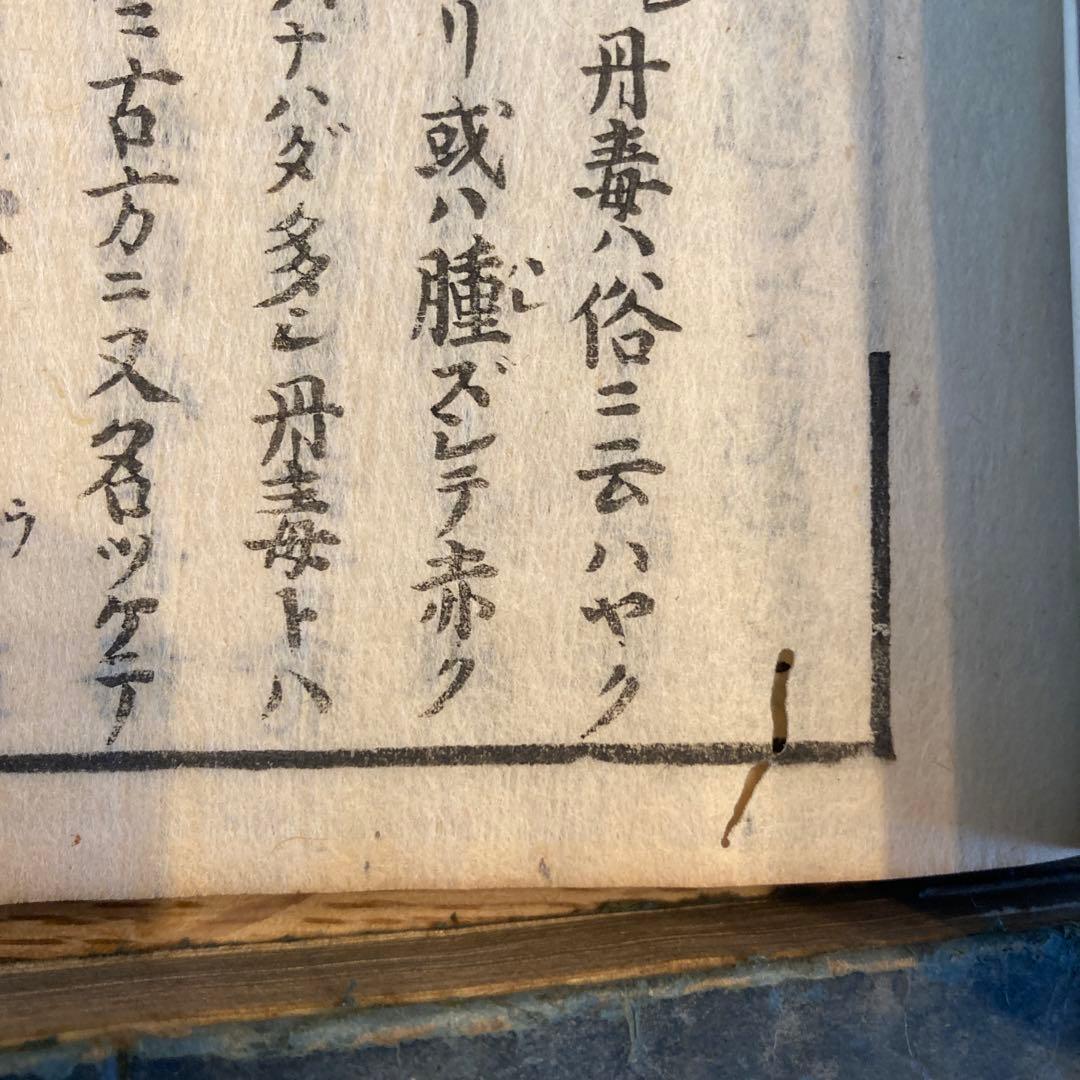 丹毒ハ俗ニ云ハヤク
リ或ハ腫ズレテ赤ク
ナハダ多シ丹毒トハ
ニ古方ニ又名ツケテ
ウ